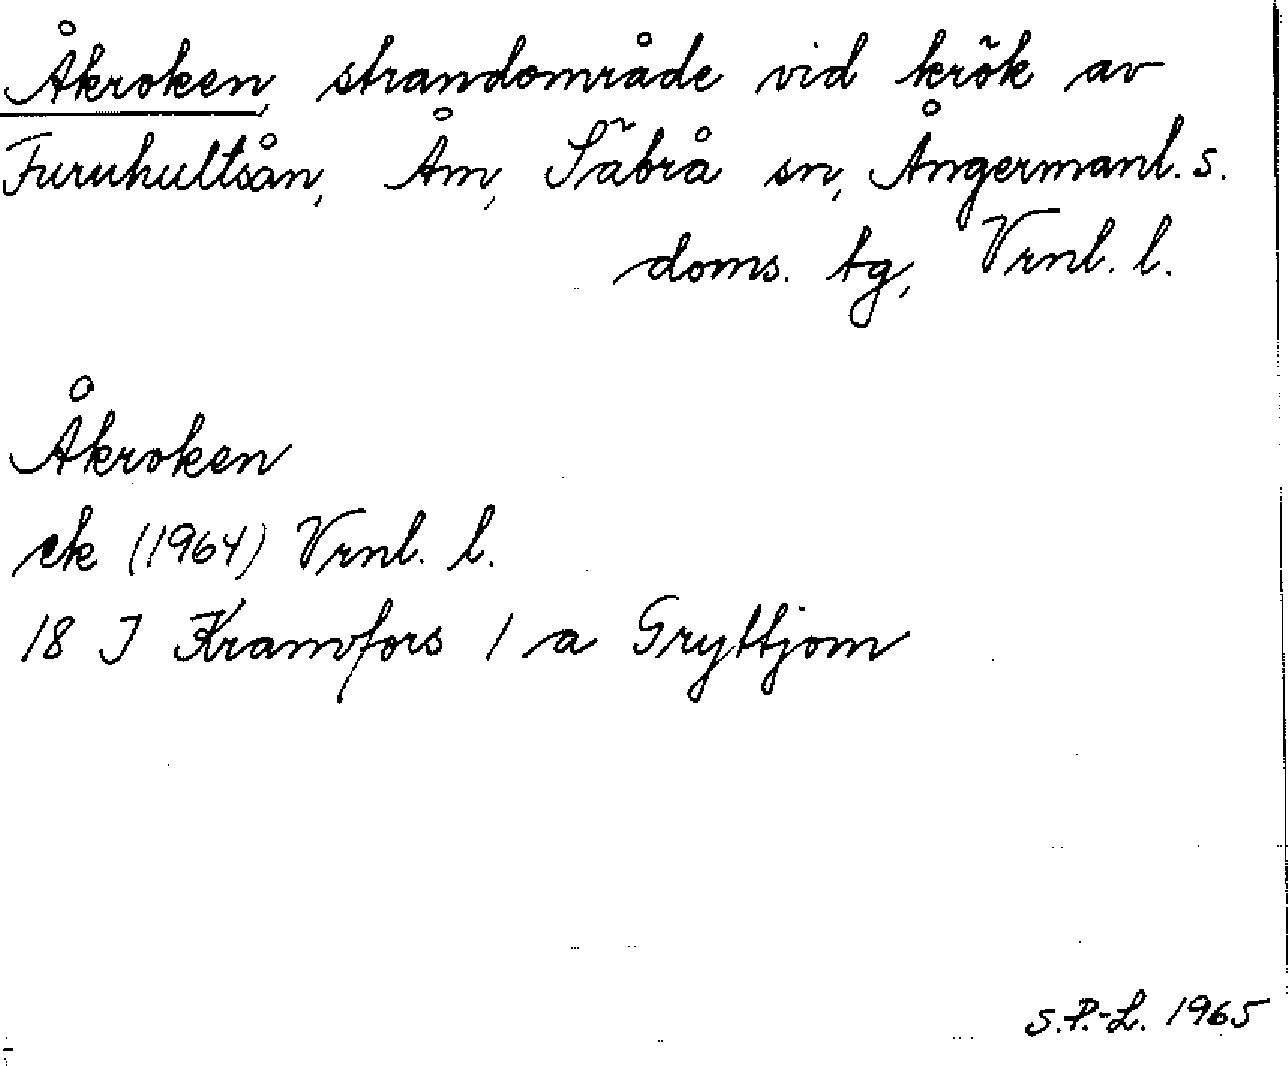 Åkroken, strandområde vid krök av
Furuhultsån, Åm, Säbrå sn, Ångermanl. s.
doms. tg, Vrnl. l.
Åkroken
ek (1964) Vrnl. l.
18 I Kramfors 1 a Gryttjom
S.P.-L. 1965